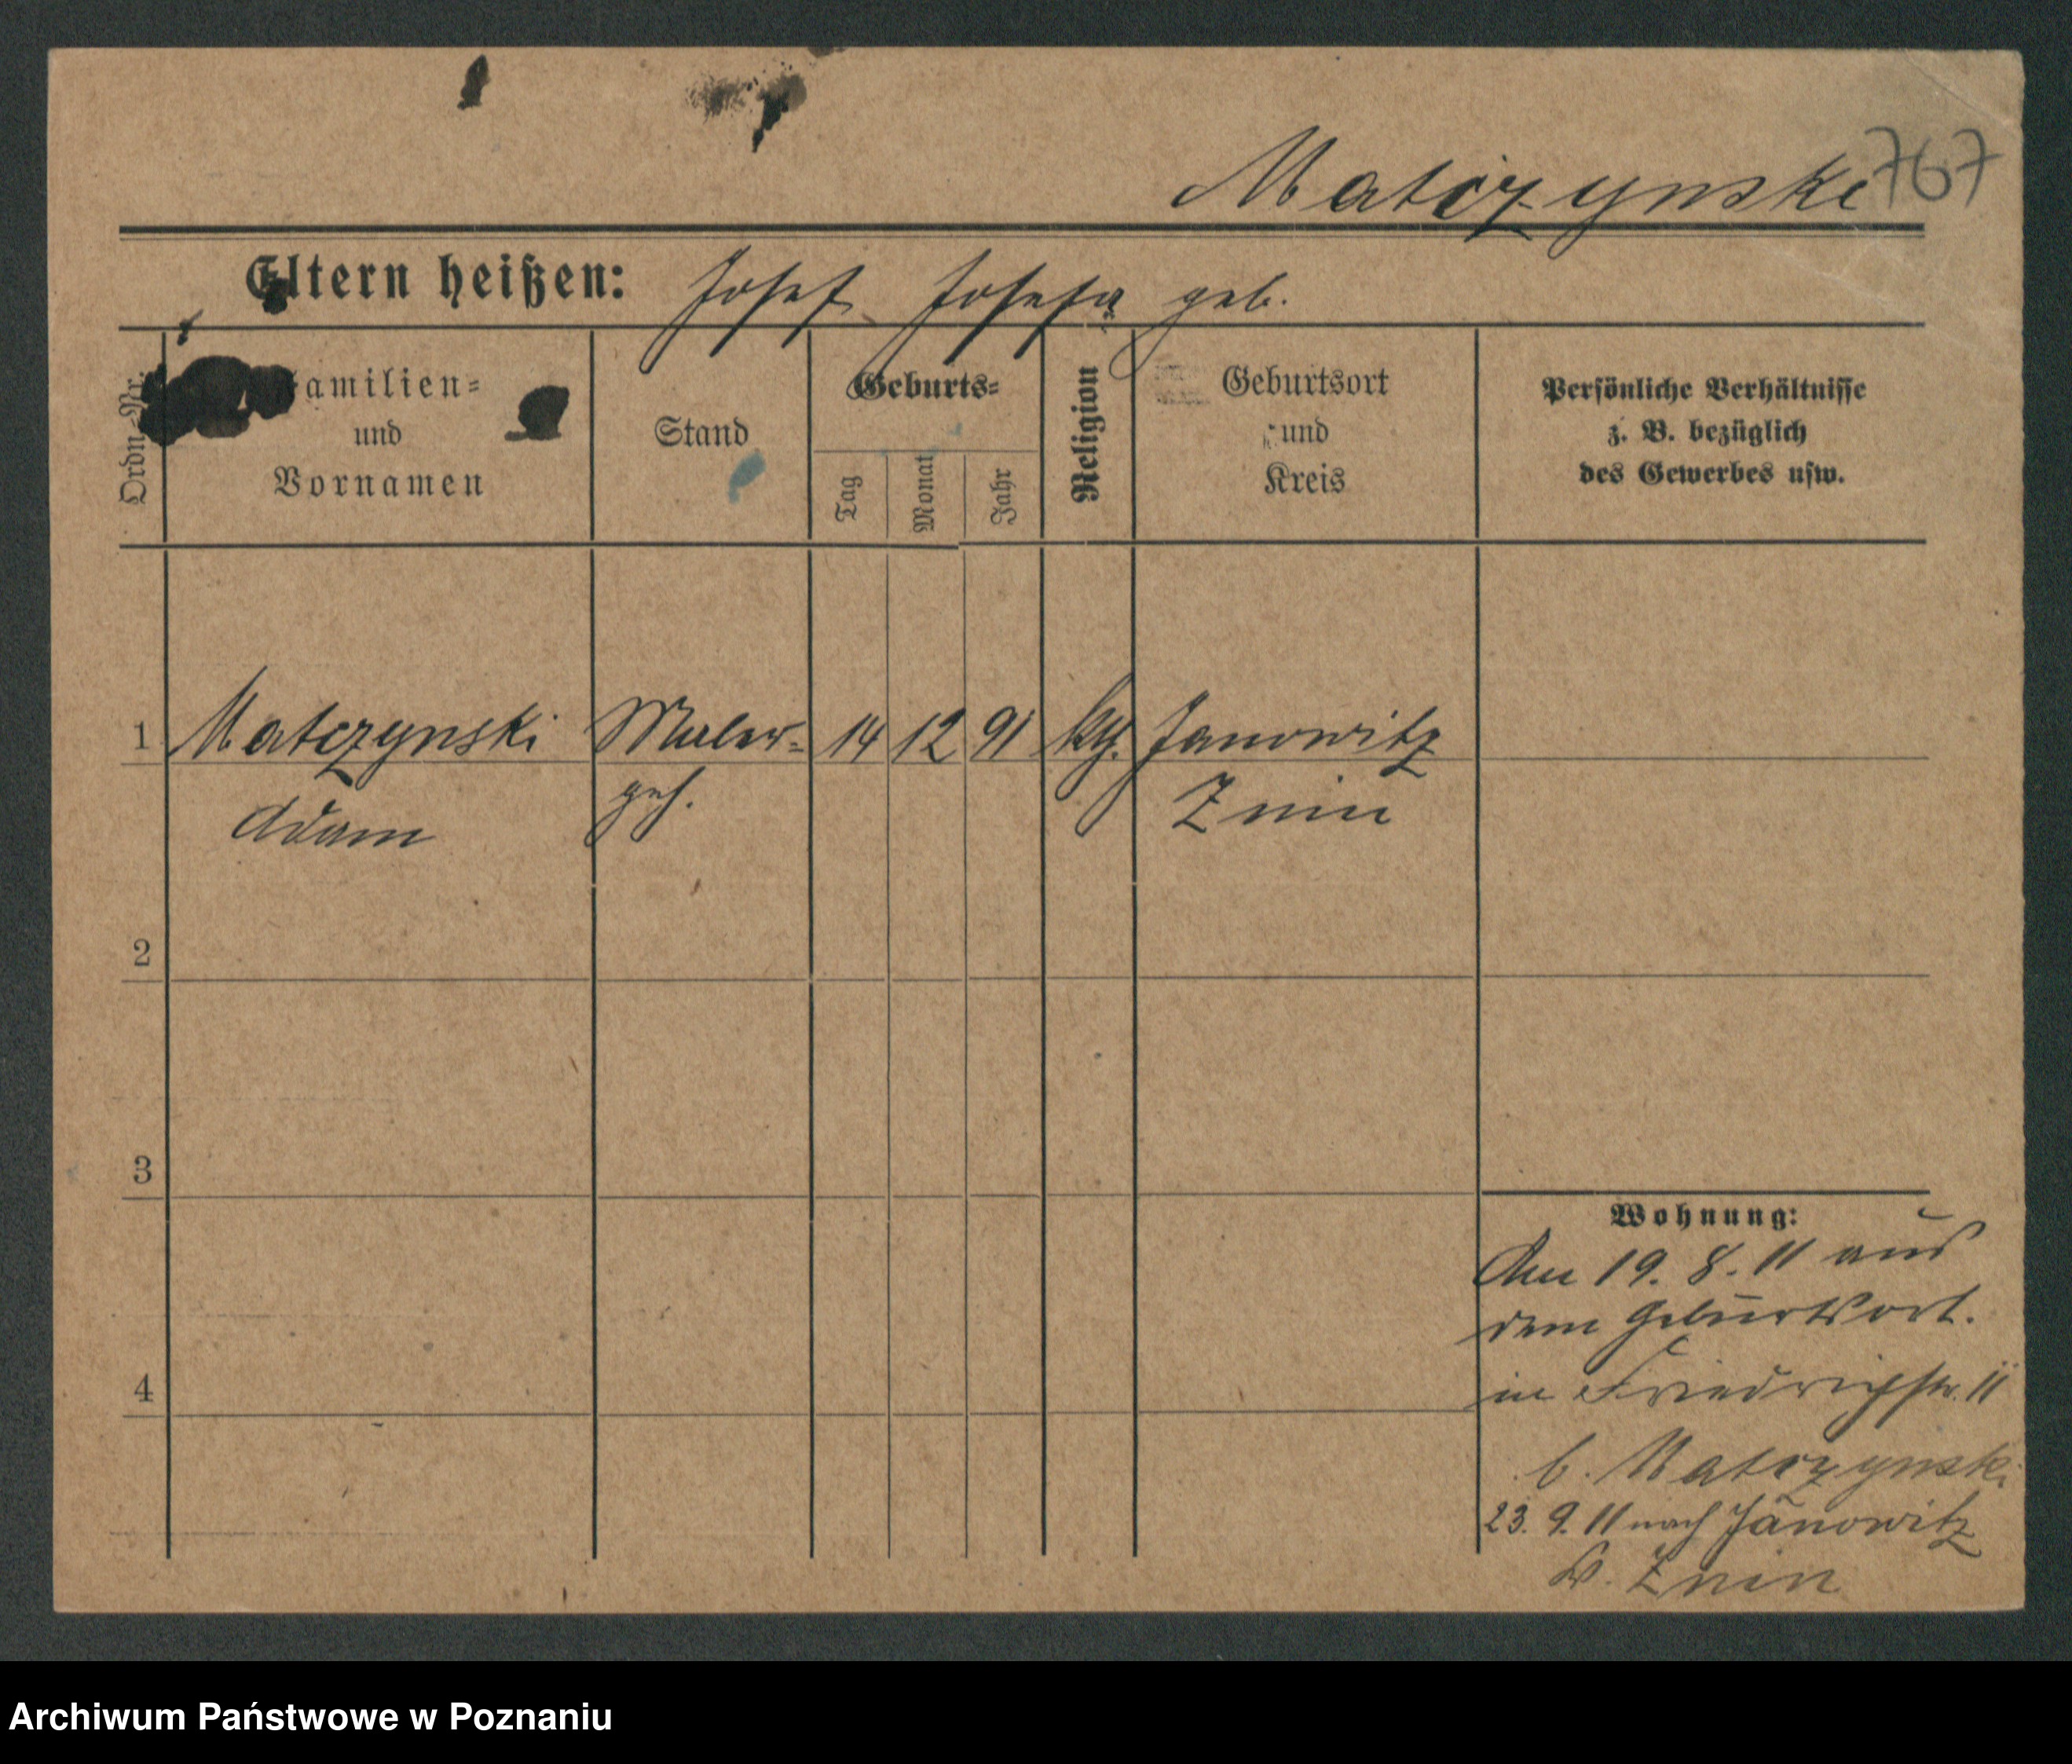 Matczynski 767
Eltern heißen: Josef Josefa geb.
Ordn.-Nr.
Familien=
und
Vornamen
Stand
Geburts=
Tag
Monat
Jahr
Religion
Geburtsort
und
Kreis
Persönliche Verhältnisse
z. B. bezüglich
des Gewerbes usw.
1 Matczynski Maler- 14 12 91 kth. Janowitz
Adam geh. Znin
2
3
4
Wohnung:
Am 19. 8. 11 aus
dem Geburtsort.
in Friedrichstr. 11
b. Matczynski
23. 9. 11 nach Janowitz
Kr. Znin
Archiwum Państwowe w Poznaniu